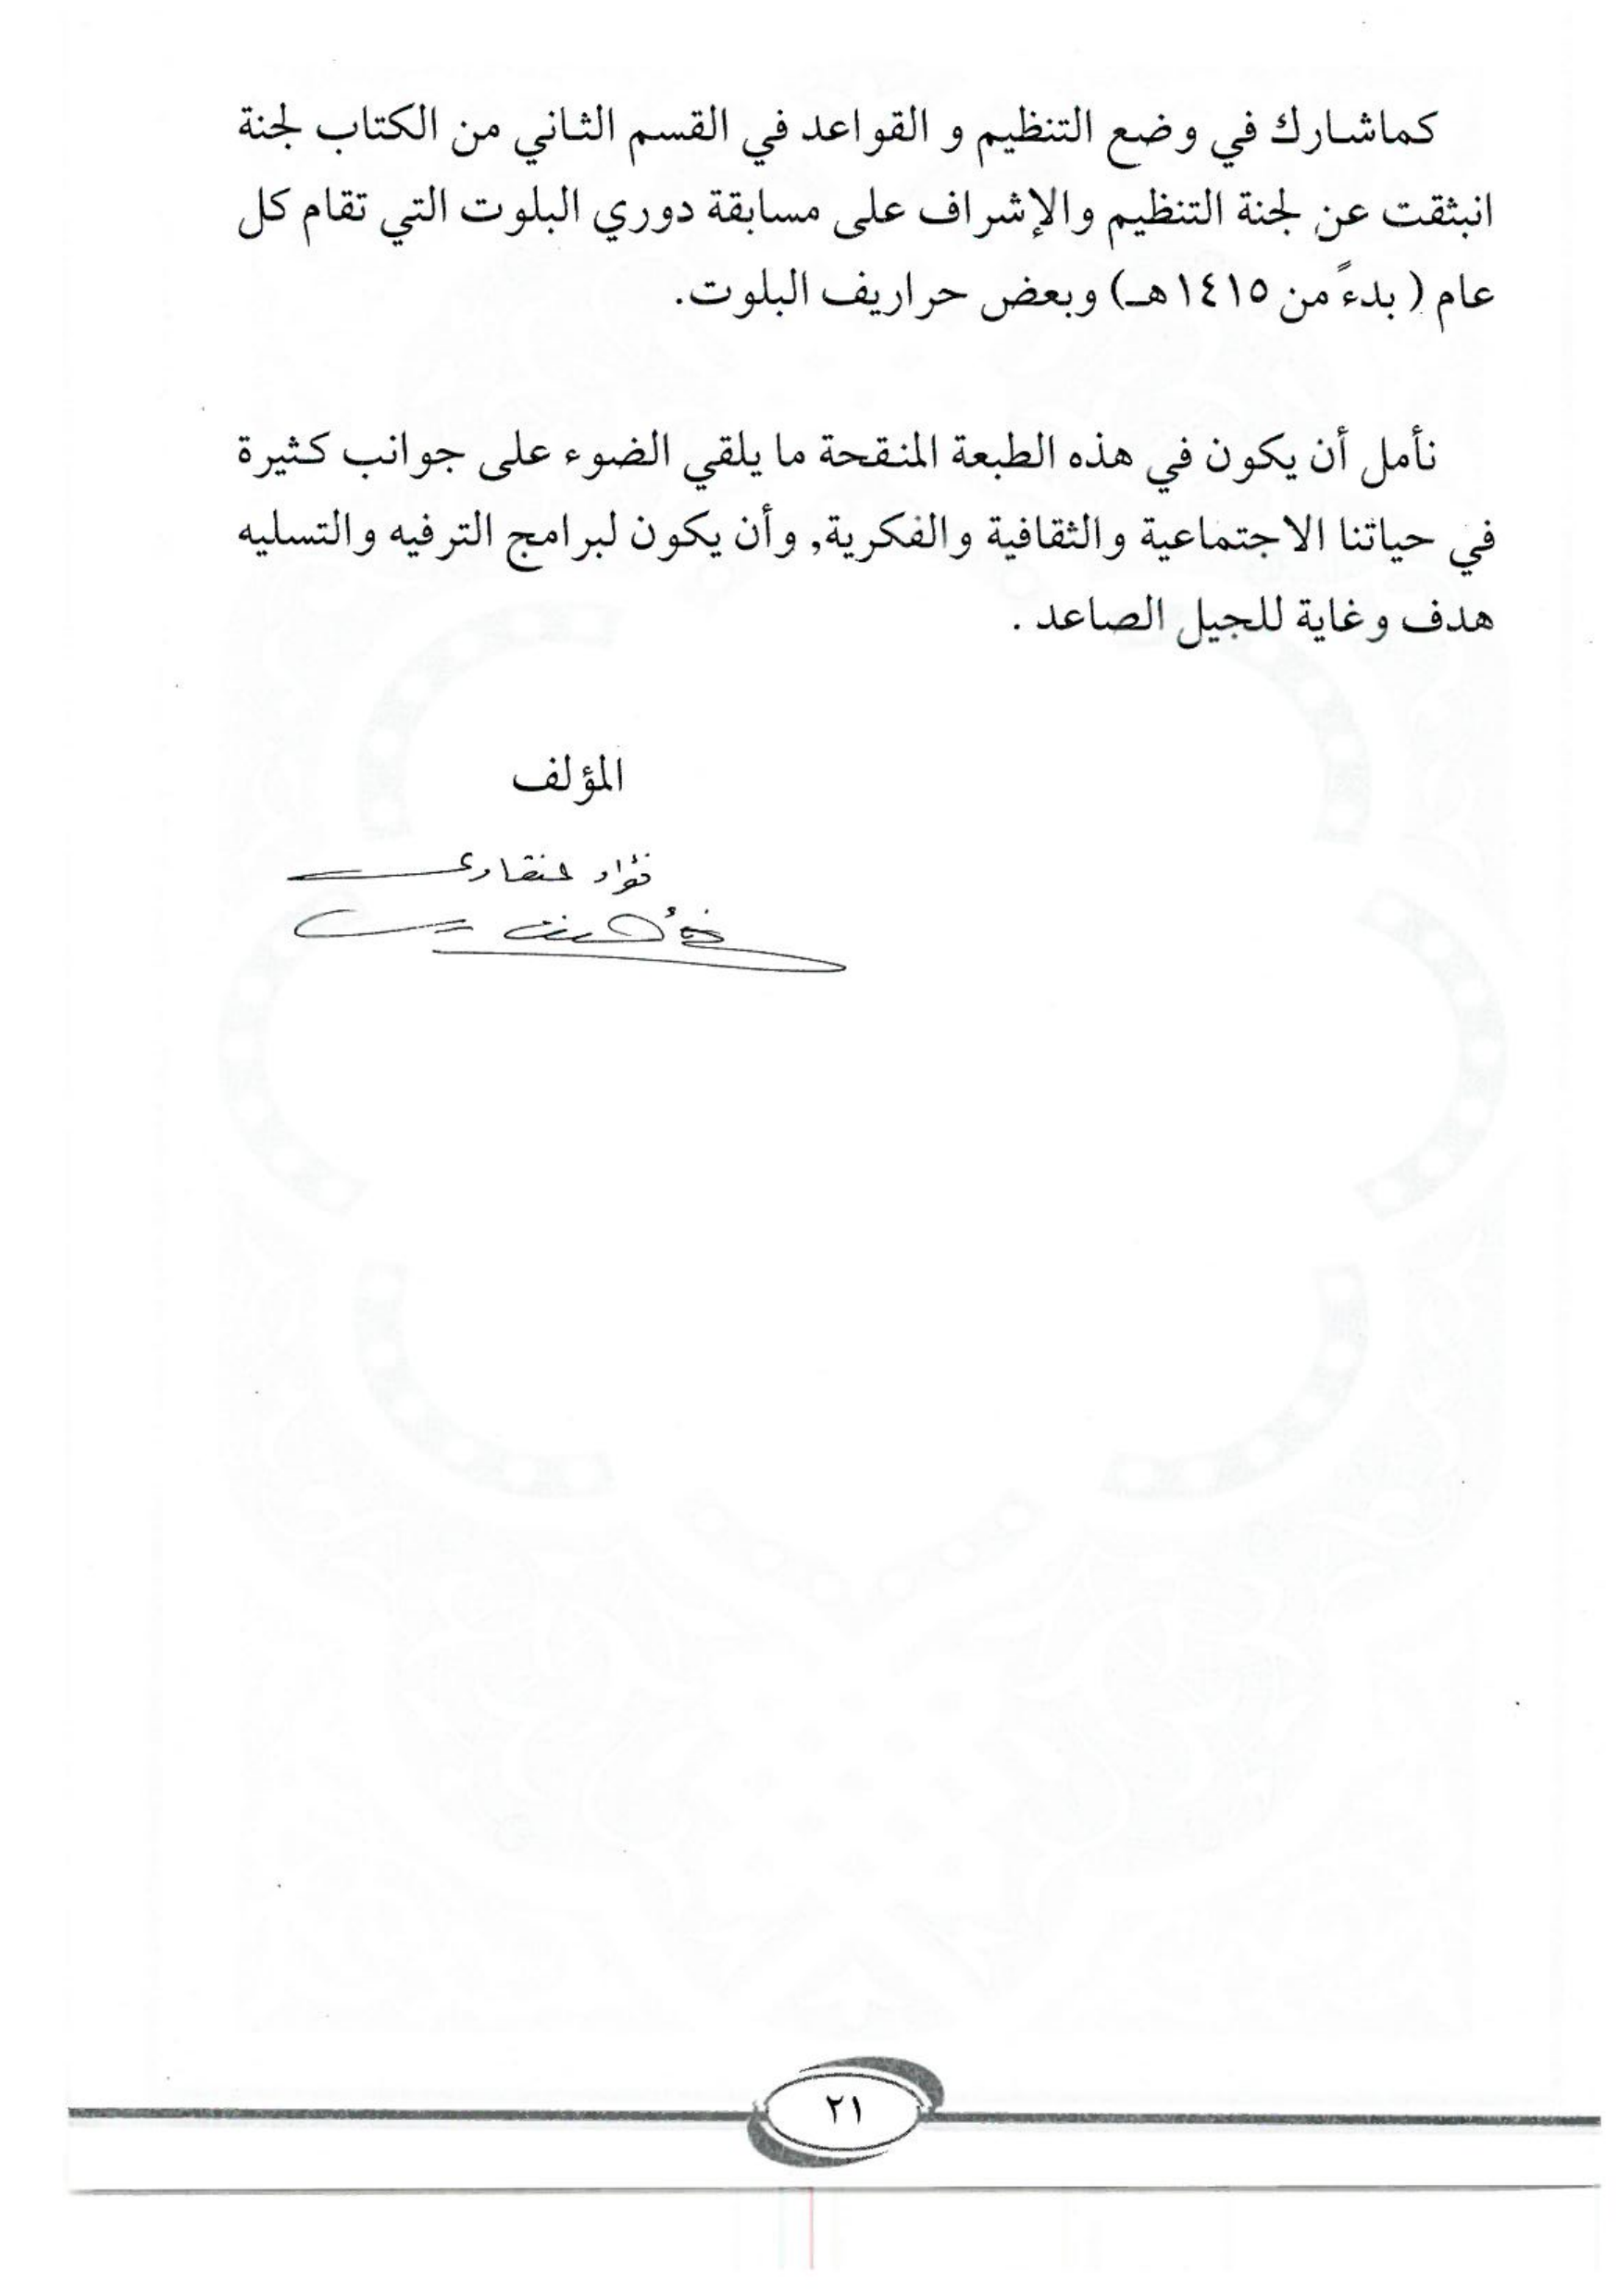 كماشارك في وضع التنظيم و القواعد في القسم الثاني من الكتاب لجنة
انبثقت عن لجنة التنظيم والإشراف على مسابقة دوري البلوت التي تقام كل
عام ( بدءً من ١٤١٥هـ) وبعض حراريف البلوت.
نأمل أن يكون في هذه الطبعة المنقحة ما يلقي الضوء على جوانب كثيرة
في حياتنا الاجتماعية والثقافية والفكرية, وأن يكون لبرامج الترفيه والتسليه
هدف وغاية للجيل الصاعد .
المؤلف
فؤاد عنقاوي
٢١